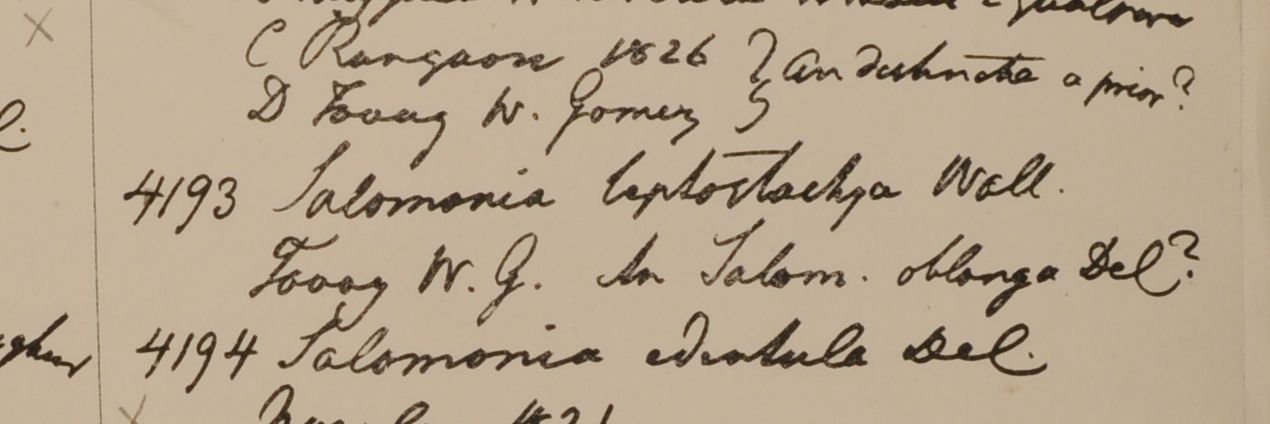 C Rangoon 1826 } an distincta a prior?
D Tavoy W. Gomez
4193 Salomonia leptostachya Wall.
Tavoy W. G. An Salom. oblonga Del?
4194 Salomonia edentula Del.
1821